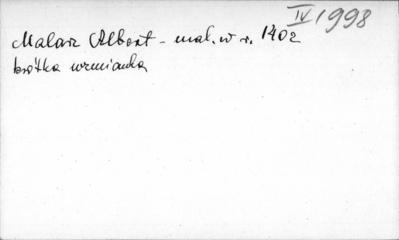 IV 1998
Malarz Albert - mal. w r. 1402
krótka wzmianka